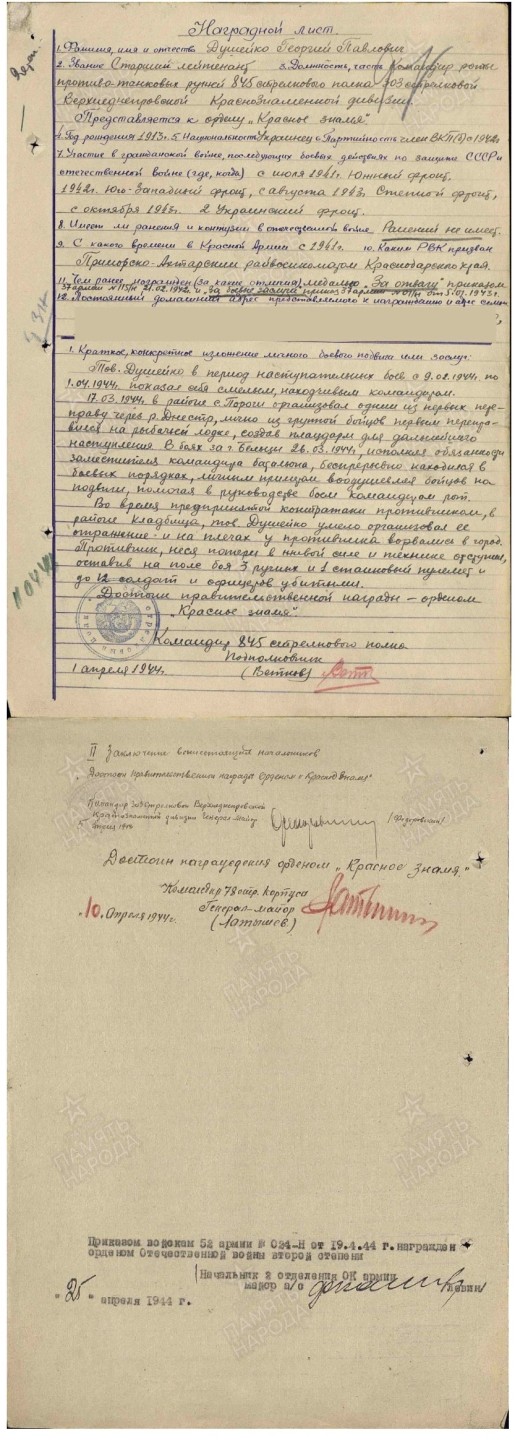 Наградной лист.
1. Фамилия, имя и отчество Душейко Георгий Павлович
2. Звание Старший лейтенант 3. Должность, часть Командир роты
противо-танковых ружей 845 стрелкового полка 303 стрелковой
Верхнеднепровской Краснознаменной дивизии.
Представляется к ордену "Красное знамя".
4. Год рождения 1913 г. 5. Национальность Украинец 6. Партийность член ВКП(б) с 1942
7. Участие в гражданской войне, последующих боевых действиях по защите СССР и
отечественной войне (где, когда) с июля 1941 г. Южный фронт,
1942 г. Юго-Западный фронт, с августа 1943 г. Степной фронт,
с октября 1943 г. 2 Украинский фронт.
8. Имеет ли ранения и контузии в отечественной войне Ранений не имеет.
9. С какого времени в Красной Армии с 1941 г. 10. Каким РВК призван
Приморско-Ахтарским райвоенкоматом Краснодарского края.
11. Чем ранее награжден (за какие отличия) медалью "За отвагу" приказом
37 армии 21.02.1942 г. и "За боевые заслуги" приказ 37 армии от 5.01.1943 г.
12. Постоянный домашний адрес представляемого к награждению и адрес семьи
1. Краткое, конкретное изложение личного боевого подвига или заслуг:
Тов. Душейко в период наступательных боев с 9.02.1944 г. по
1.04.1944 г. показал себя смелым, находчивым командиром.
17.03.1944 г. в районе с. Пороги организовал одним из первых пере-
праву через р. Днестр, лично из группой бойцов первым перепра-
вился на рыбачьей лодке, создав плацдарм для дальнейшего
наступления. В боях за г. Бельцы 26.03.1944 г., исполняя обязанности
заместителя командира батальона, беспрерывно находился в
боевых порядках, личным примером воодушевлял бойцов на
подвиги, помогая в руководстве боем командирам рот.
Во время предпринятой контратаки противником, в
районе кладбища, тов. Душейко умело организовал ее
отражение и на плечах у противника ворвались в город.
Противник, неся потери в живой силе и технике отступил,
оставив на поле боя 3 ручных и 1 станковый пулемет и
до 12 солдат и офицеров убитыми.
Достоин правительственной награды – орденом
"Красное знамя".
Командир 845 стрелкового полка
Подполковник
1 апреля 1944 г. (Ветков)
II Заключение вышестоящих начальников
Достоин правительственной награды Ордена "Красное Знамя"
Командир 303 стрелковой Верхнеднепровской
Краснознаменной дивизии Генерал-Майор (Федоровский)
5 апреля 1944
Достоин награждения орденом "Красное Знамя".
Командир 78 стр. корпуса
Генерал-майор
"10" Апреля 1944 г. (Латышев.)
Приказом войскам 52 армии № 024-Н от 19.4.44 г. награжден
орденом Отечественной войны второй степени
Начальник 2 отделения ОК армии
майор а/с
"25" апреля 1944 г.
ПАМЯТЬ НАРОДА